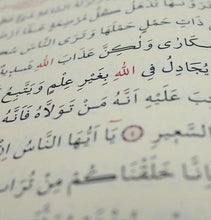 ذَاتِ حَمْلٍ حَمْلَهَا وَتَرَى النَّاسَ
سُكَارَىٰ وَلَٰكِنَّ عَذَابَ اللَّهِ
يُجَادِلُ فِي اللَّهِ بِغَيْرِ عِلْمٍ وَيَتَّبِعُ
عَلَيْهِ أَنَّهُ مَنْ تَوَلَّاهُ فَأَنَّهُ
السَّعِيرِ ٤ يَا أَيُّهَا النَّاسُ إِنْ
خَلَقْنَاكُمْ مِنْ تُرَابٍ